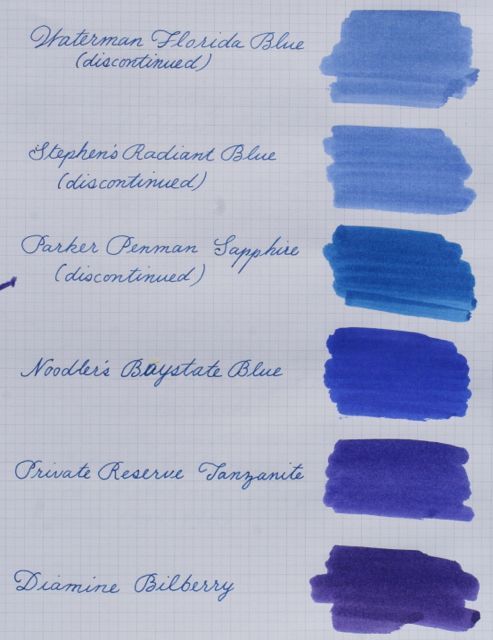 Waterman Florida Blue
(discontinued)
Stephen's Radiant Blue
(discontinued)
Parker Penman Sapphire
(discontinued)
Noodler's Baystate Blue
Private Reserve Tanzanite
Diamine Bilberry